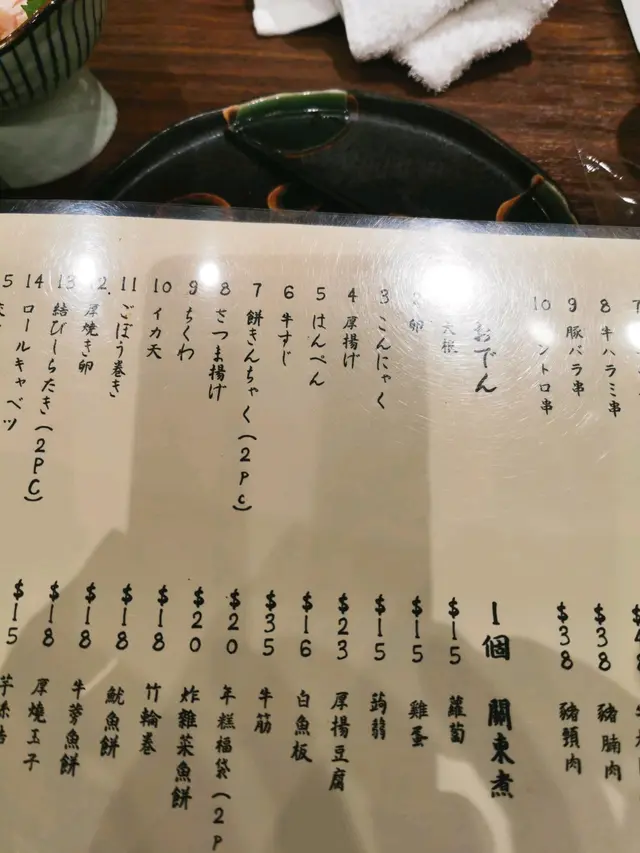 8 牛ハラミ串
9 豚バラ串 $38 豬腩肉
10 ントロ串 $38 豬頸肉
おでん 1個 關東煮
大根 $15 蘿蔔
2 卵 $15 雞蛋
3 こんにゃく $15 蒟蒻
4 厚揚げ $23 厚揚豆腐
5 はんぺん $16 白魚板
6 牛すじ $35 牛筋
7 餅きんちゃく(2PC) $20 年糕福袋(2P
8 さつま揚げ $20 炸雜菜魚餅
9 ちくわ $18 竹輪巻
10 イカ天 $18 魷魚餅
11 ごぼう巻き $18 牛蒡魚餅
12. 厚焼き卵 $18 厚燒玉子
13 結びしらたき(2PC) $15 芋絲結
14 ロールキャベツ